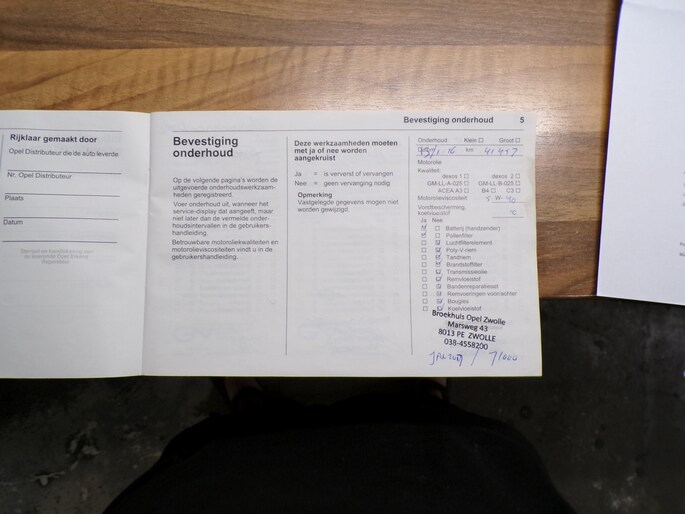 Rijklaar gemaakt door
Opel Distributeur die de auto leverde
Nr. Opel Distributeur
Plaats
Datum
Bevestiging onderhoud 5
Bevestiging
onderhoud
Op de volgende pagina's worden de
uitgevoerde onderhoudswerkzaam-
heden geregistreerd.
Voer onderhoud uit, wanneer het
service-display dat aangeeft, maar
niet later dan de vermelde onder-
houdsintervallen in de gebruikers-
handleiding.
Betrouwbare motoroliekwaliteiten en
motorolieviscositeiten vindt u in de
gebruikershandleiding.
Deze werkzaamheden moeten
met ja of nee worden
aangekruist
Ja = is ververst of vervangen
Nee = geen vervanging nodig
Opmerking
Vastgelegde gegevens mogen niet
worden gewijzigd.
Onderhoud: Klein Groot
16 km 41447
Motorolie
Kwaliteit:
dexos 1 dexos 2
GM-LL-A-025 GM-LL-B-025
ACEA A3 B4 C3
Motorolieviscositeit 5 W 40
Vorstbescherming,
koelvloeistof °C
Ja Nee
Batterij (handzender)
Pollenfilter
Luchtfilterelement
Poly-V-riem
Tandriem
Brandstoffilter
Transmissieolie
Remvloeistof
Bandenreparatieset
Remvoeringen voor/achter
Bougies
Koelvloeistof
Broekhuis Opel Zwolle
Marsweg 43
8013 PE ZWOLLE
038-4558200